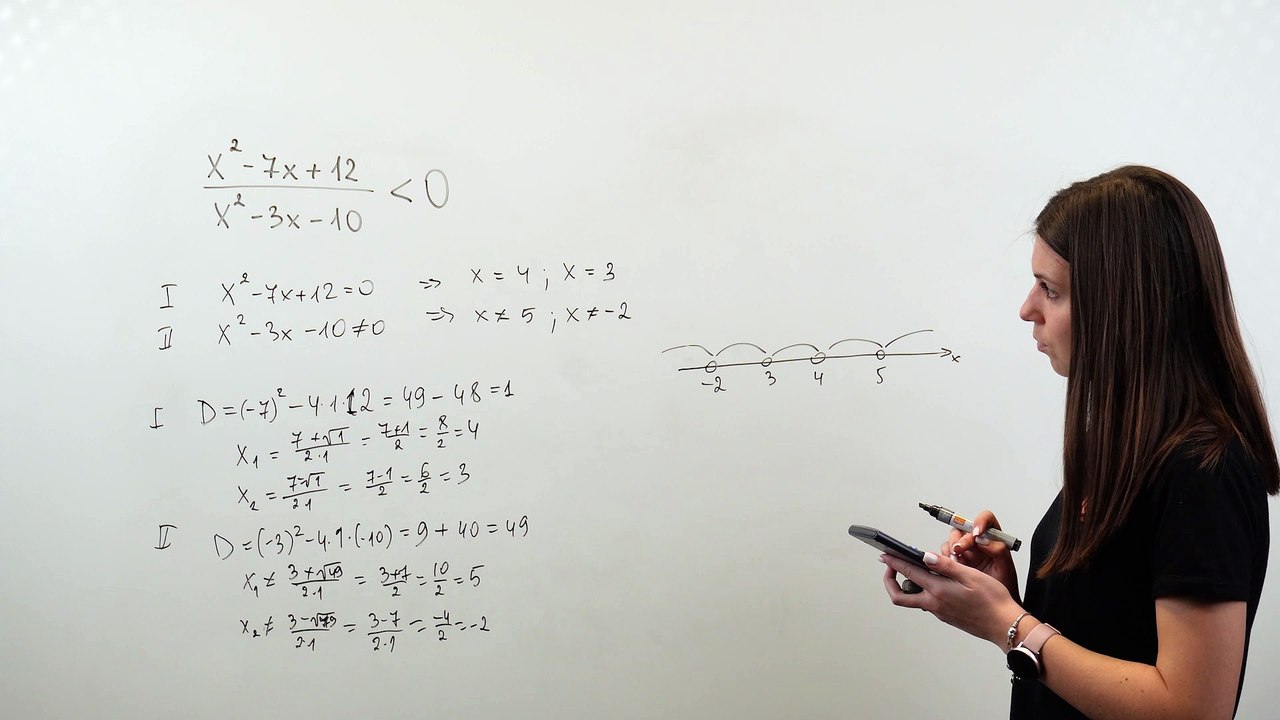 x² - 7x + 12
x² - 3x - 10
< 0
I x² - 7x + 12 = 0 => x = 4 ; x = 3
II x² - 3x - 10 ≠ 0 => x ≠ 5 ; x ≠ -2
I D = (-7)² - 4·1·12 = 49 - 48 = 1
x₁ = (7+√1)/(2·1) = (7+1)/2 = 8/2 = 4
x₂ = (7-√1)/(2·1) = (7-1)/2 = 6/2 = 3
II D = (-3)² - 4·1·(-10) = 9 + 40 = 49
x₁ ≠ (3+√49)/(2·1) = (3+7)/2 = 10/2 = 5
x₂ ≠ (3-√49)/(2·1) = (3-7)/(2·1) = -4/2 = -2
-2 3 4 5 x